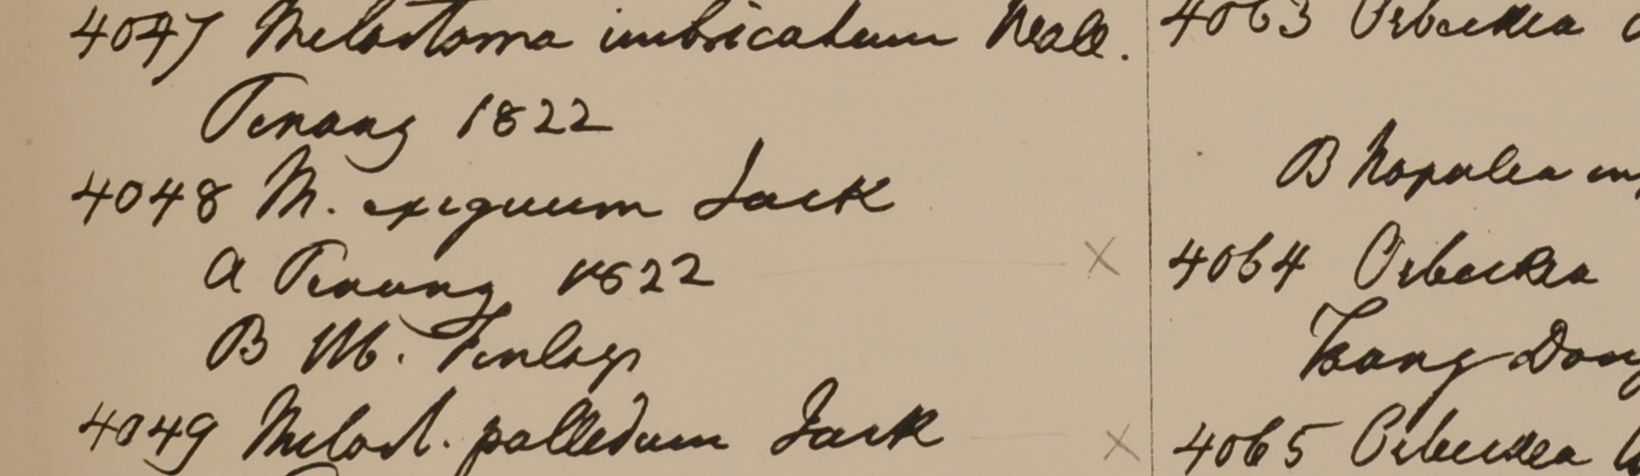 4047 Melastoma imbricatum Wall.
Penang 1822
4048 M. exiguum Jack
A Penang 1822
B Hb. Finlays
4049 Melast. pallidum Jack
4063 Osbeckia
B Napalea
4064 Osbeckia
Taong Dong
4065 Osbeckia